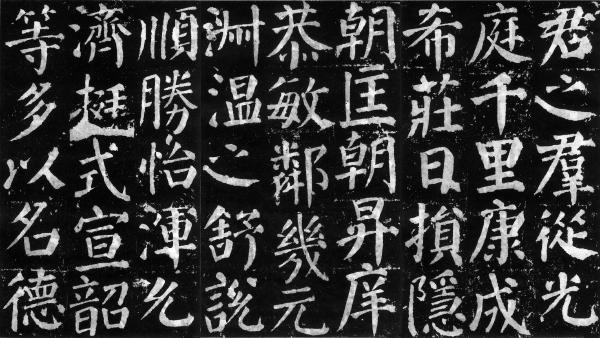 君之羣從光
庭千里康成
希莊日損隱
朝匡朝昇庠
恭敏鄰幾元
淑温之舒說
順勝怡渾允
濟挺式宣韶
等多以名德